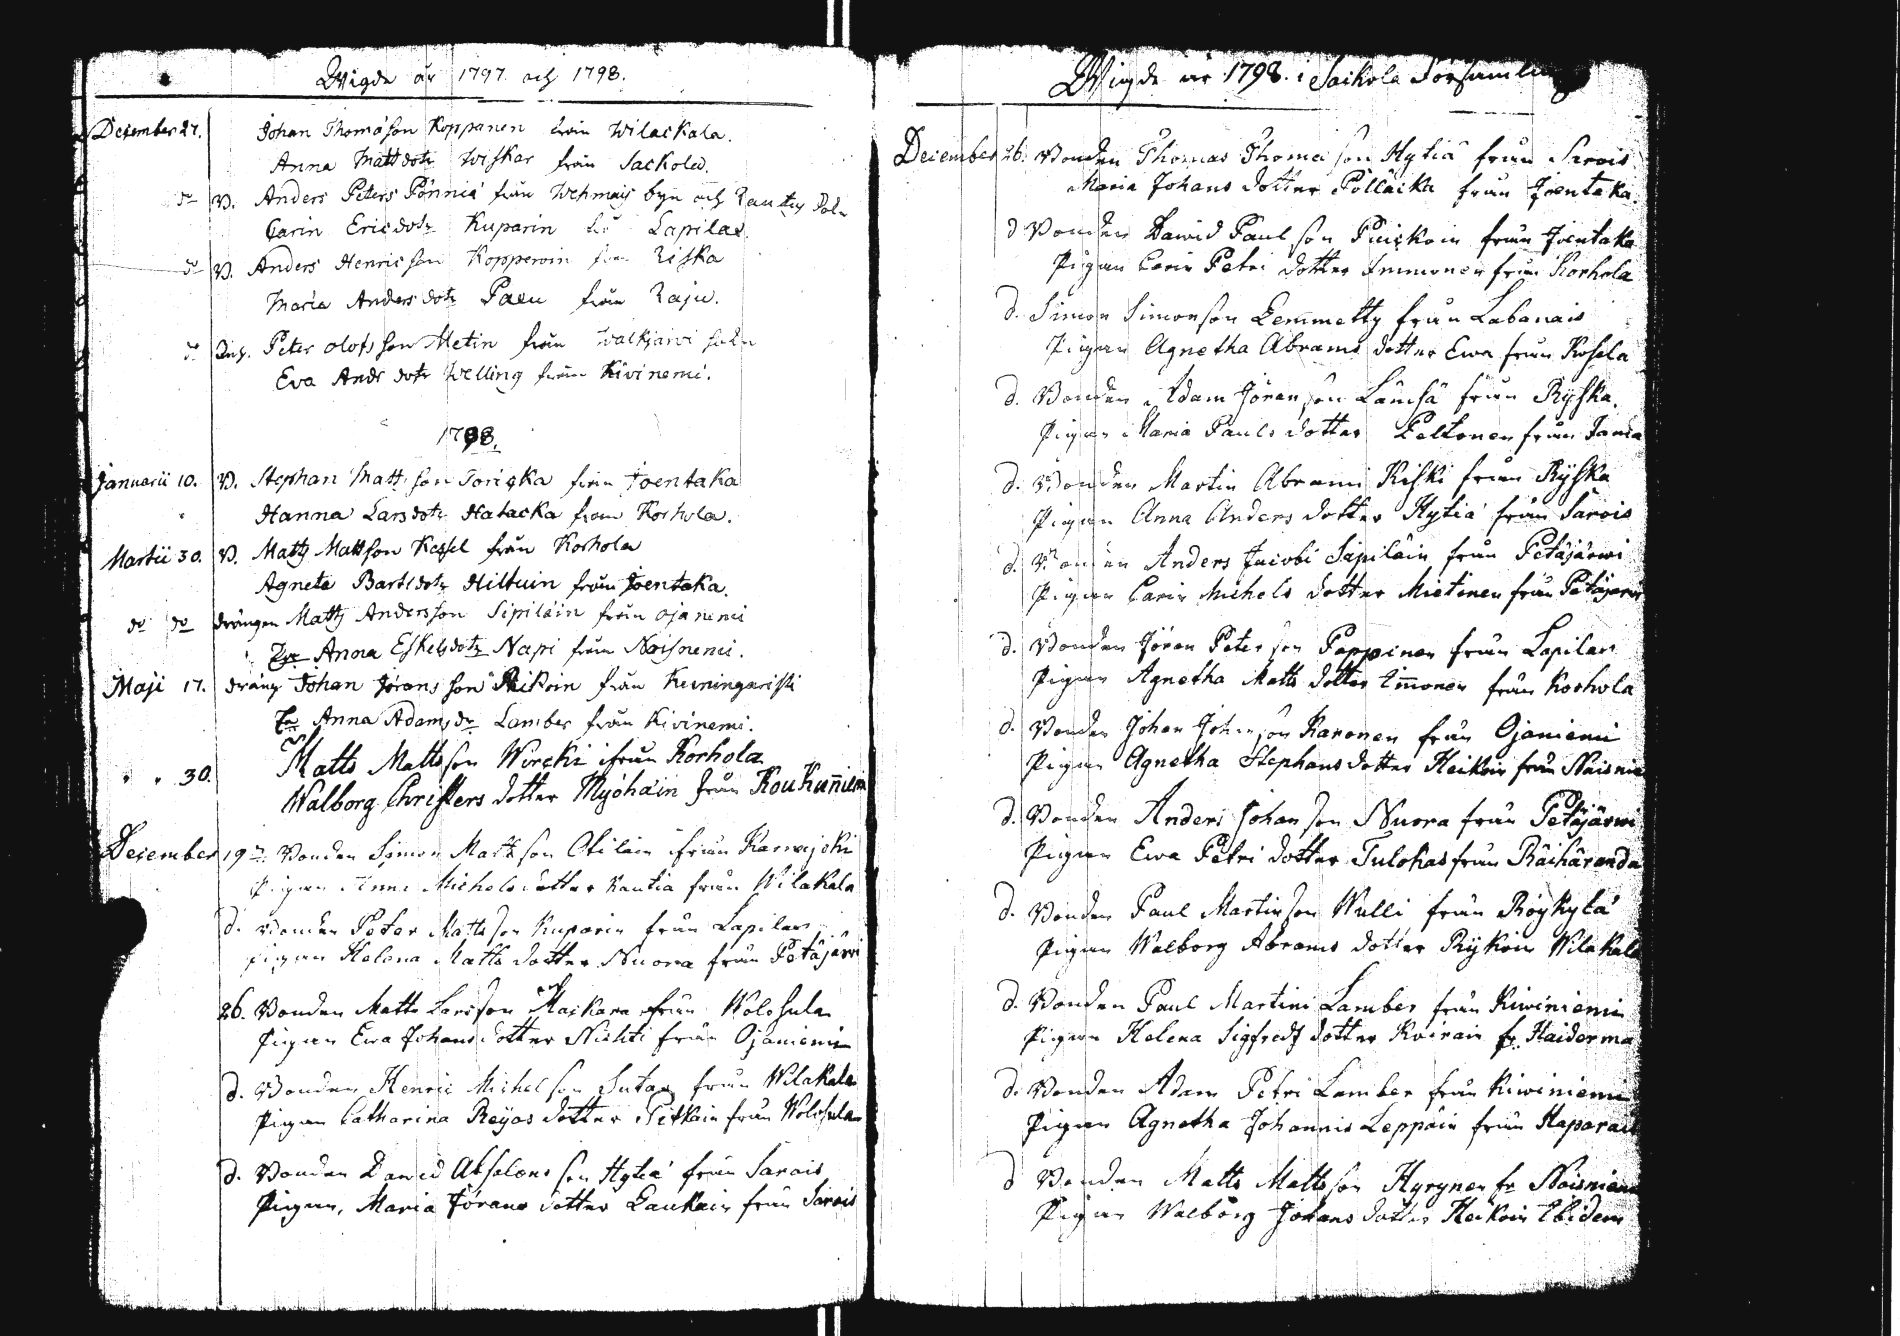 Wigde år 1797. och 1798.
December 27. Johan Thomason Kopparen från Wilackala.
Anna Mattdotr Wiskar från Sackola.
do V. Anders Peters Pönniä från Wehmais byn och Rautus Sokn
Carin Ericdotr Kuparin do Lapilax.
do V. Anders Henricson Kopperoin från Riska
Maria Andersdotr Paeu från Raju.
do Peter Olofsson Metin från Walkjärvi Sokn
Eva Andrdotr Welling från Kivinemi.
1798.
Januarii 10. V. Stephan Mattson Toriska från Joentaka
Hanna Larsdotr Hatacka från Korhola.
Martii 30. V. Matts Mattson Kessel från Korhola
Agneta Bartsdotr Hiltuin från Joentaka.
do do drängen Matts Andersson Sipiläin från Ojanemi
Anna Eskelsdotr Napi från Noisnemi.
Maji 17. dräng Johan Jöransson Rikoin från
Anna Adamsdr Lamber från Kivinemi.
" " 30. Matts Mattsson Wircki ifrån Korhola
Walborg Christers dotter Myöhäin från Koukunniemi
December 19. Bonden Simon Mattson Atilain från Karwajoki
Pigan Anna Michelsdotter Kautia från Wilakala
d. Bonden Peter Mattsson Kuparin från Lapilax
Pigan Helena Matts dotter Nuora från Petäjärvi
26. Bonden Matts Larsson Mackara från Wolosula
Pigan Ewa Johans dotter Nichti från Ojaniemi
d. Bonden Henric Michelson Sutar från Wilakala
Pigan Catharina Reijos dotter Pitkain från Wolosula
d. Bonden David Absolons son Hytiä från Sarois
Pigan, Maria Jörans dotter Laukain från Sarois
Wigde år 1798. i Saikola Församling
December 26. Bonden Thomas Thomæ son Hytiä från Sarois
Maria Johans dotter Pölläcka från Joentaka.
d Bonden Dawid Paulson från Joentaka
Pigan Carin Petri dotter Immonen från Korhola
d. Simon Simonson Lemmetty från Labanais
Pigan Agnetha Abrams dotter Ewa från Kosela
d. Bonden Adam Jöranson Länsä från Ryska.
Pigan Maria Pauls dotter Peltonen från
d. Bonden Martin Abrami Kiski från Ryska
Pigan Anna Anders dotter Hytiä från Sarois
d. Bonden Anders Jacobi Sapiläin från Petäjärwi
Pigan Carin Michels dotter Mietinen från Petäjärwi
d. Bonden Jören Peterson Poppinen från Lapilax
Pigan Agnetha Matts dotter Immonen från Korhola
d. Bonden Johan Johanson Karonen från Ojaniemi
Pigan Agnetha Stephans dotter Heikoin från Noisnie
d. Bonden Anders Johanson Nuora från Petäjärwi
Pigan Ewa Petri dotter Tulokas från Räihäranda
d. Bonden Paul Martinson Wulli från Röykylä
Pigan Walborg Abrams dotter Rykoin Wilakala
d. Bonden Paul Martini Lamber från Kiwiniemi
Pigan Helena Sigfreds dotter Koirain fr. Haiderma
d. Bonden Adam Petri Lamber från Kiwiniemi
Pigan Agnetha Johannis Leppäin från Haparais
d Bonden Matts Mattsson Hyrynen fr Noisniemi
Pigan Walborg Johans dotter Heikoin Ibidem